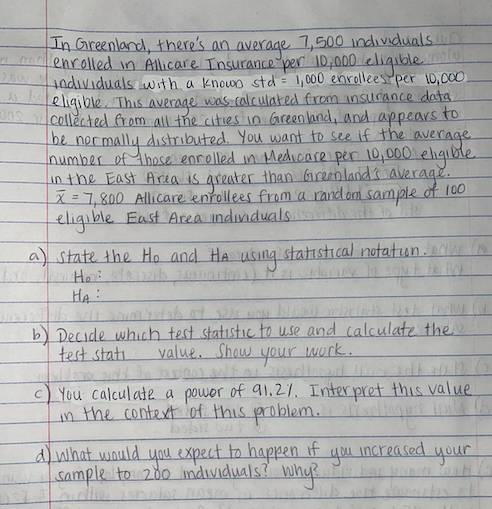 In Greenland, there's an average 7,500 individuals
enrolled in Allicare Insurance per 10,000 eligible
individuals with a known std = 1,000 enrollees per 10,000
eligible. This average was calculated from insurance data
collected from all the cities in Greenland, and appears to
be normally distributed. You want to see if the average
number of those enrolled in Medicare per 10,000 eligible
in the East Area is greater than Greenland's average.
x̄ = 7,800 Allicare enrollees from a random sample of 100
eligible East Area individuals
a) State the Ho and HA using statistical notation.
Ho:
HA:
b) Decide which test statistic to use and calculate the
test stati value. Show your work.
c) You calculate a power of 91.2%. Interpret this value
in the context of this problem.
d) What would you expect to happen if you increased your
sample to 200 individuals? Why?